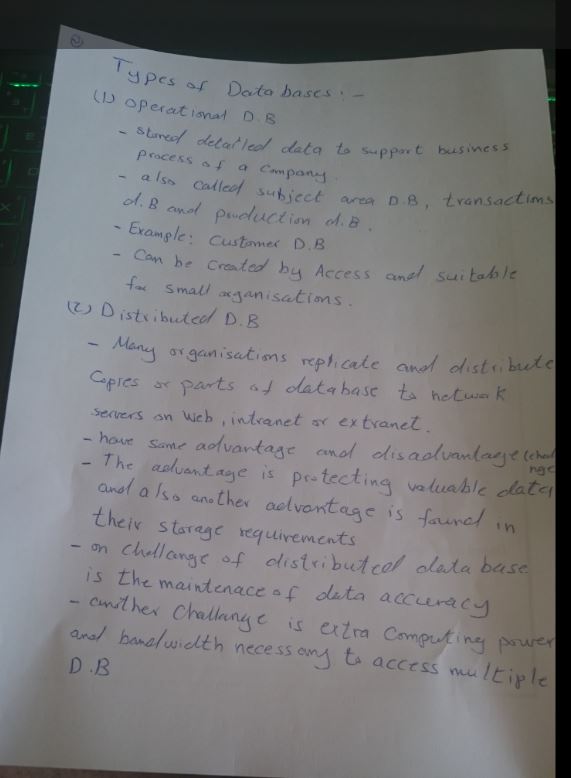 2
Types of Data bases :-
(1) operational D.B
- stored detailed data to support business
process of a company.
- also called subject area D.B, transactions
d.B and production d.B.
- Example: Customer D.B
- Can be created by Access and suitable
for small organisations.
(2) Distributed D.B
- Many organisations replicate and distribute
Copies or parts of database to network
servers on web, intranet or extranet.
- have some advantage and disadvantage (chal
nge
- The advantage is protecting valuable data
and also another advantage is found in
their storage requirements
- on challange of distributed data base
is the maintenace of data accuracy
- another Challange is extra Computing power
and bandwidth necessary to access multiple
D.B